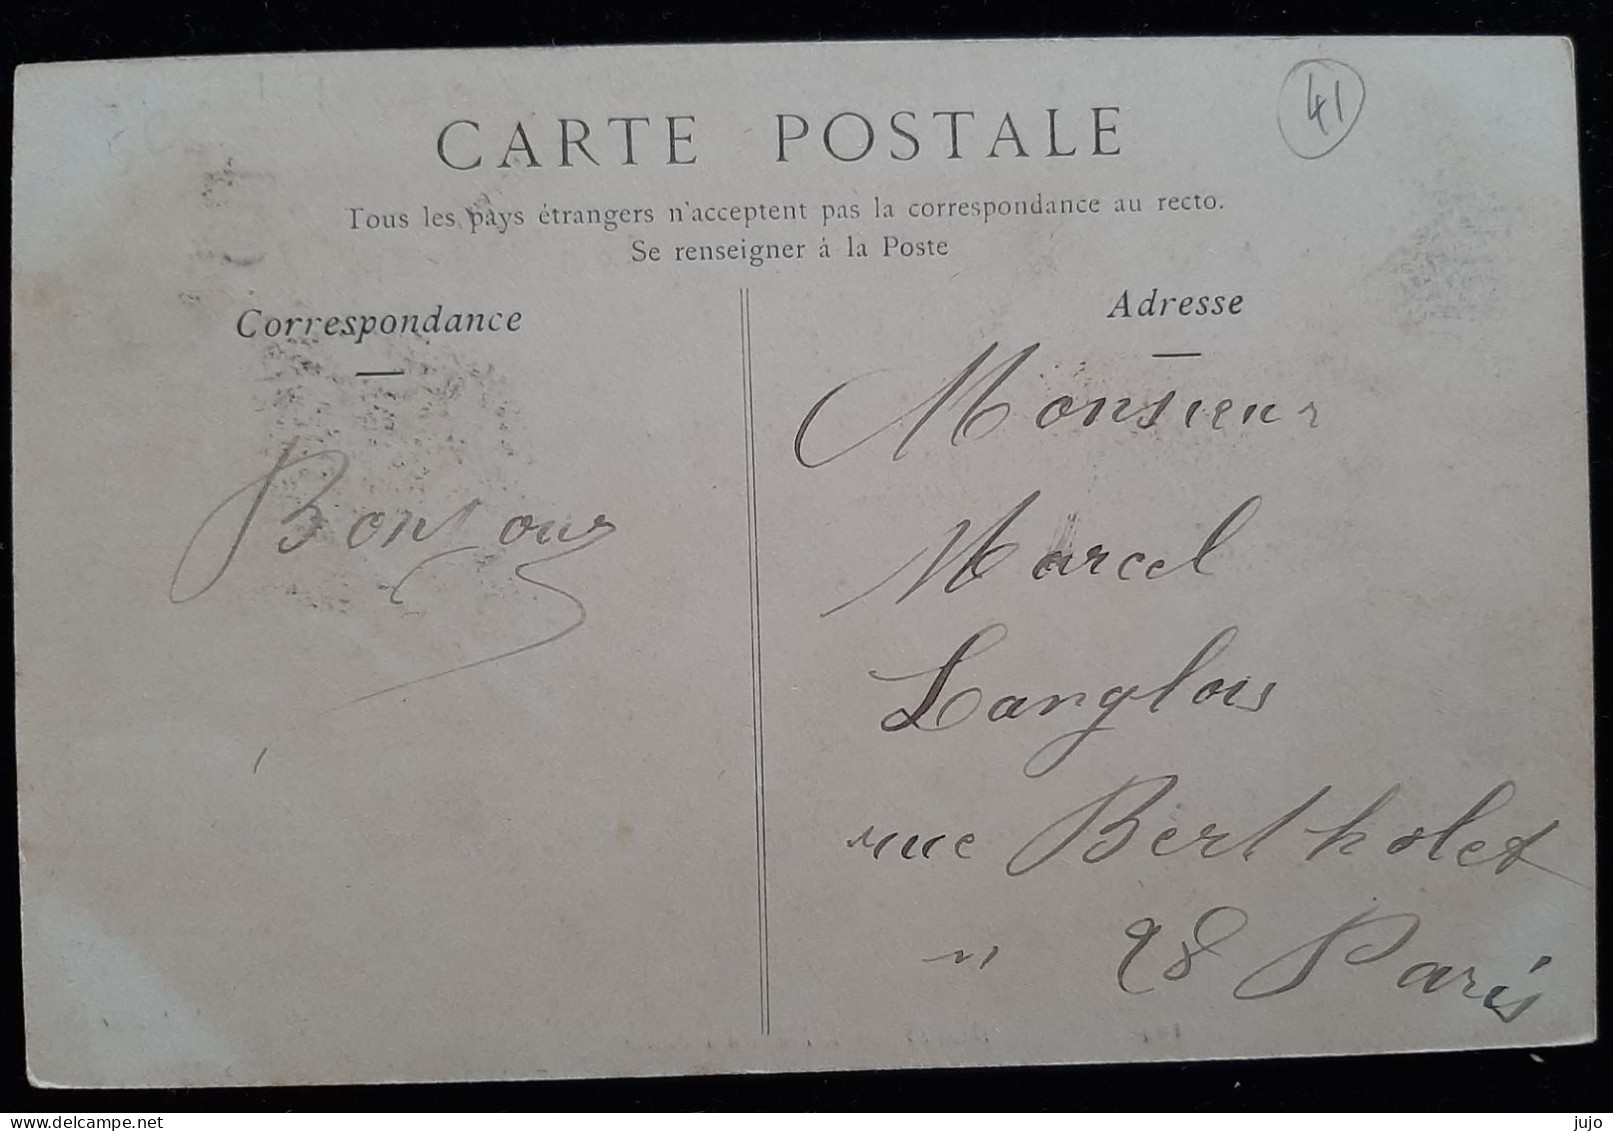 41
CARTE POSTALE
Tous les pays étrangers n'acceptent pas la correspondance au recto.
Se renseigner à la Poste
Correspondance
Adresse
Monsieur
Bonjour
Marcel
Langlois
rue Berthollet
n 28 Paris
delcampe.net
jujo